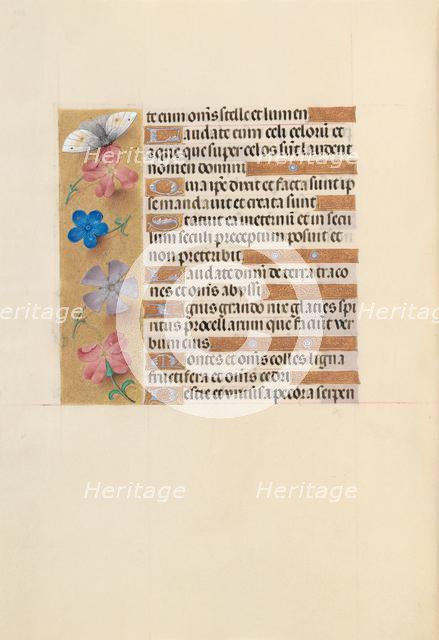 te eum om̄s stelle et lumen
audate eum celi celorū et
aque que super celos sūt laudent
nomen domini
uia ip̄e dixit et facta sunt ip
se mandauit et creata sunt
tatuit ea in eternū et in secu
lum seculi preceptum posuit et
non preteribit
audate dom̄ de terra traco
nes et om̄s abyssi
gnis grando nix glacies spi
ritus procellarum que faciūt ver
bum eius
ontes et om̄s colles ligna
fructifera et om̄s cedri
estie et vniuersa pecora serpen
Heritage Heritage
Heritage Heritage Heritage
Heritage Heritage